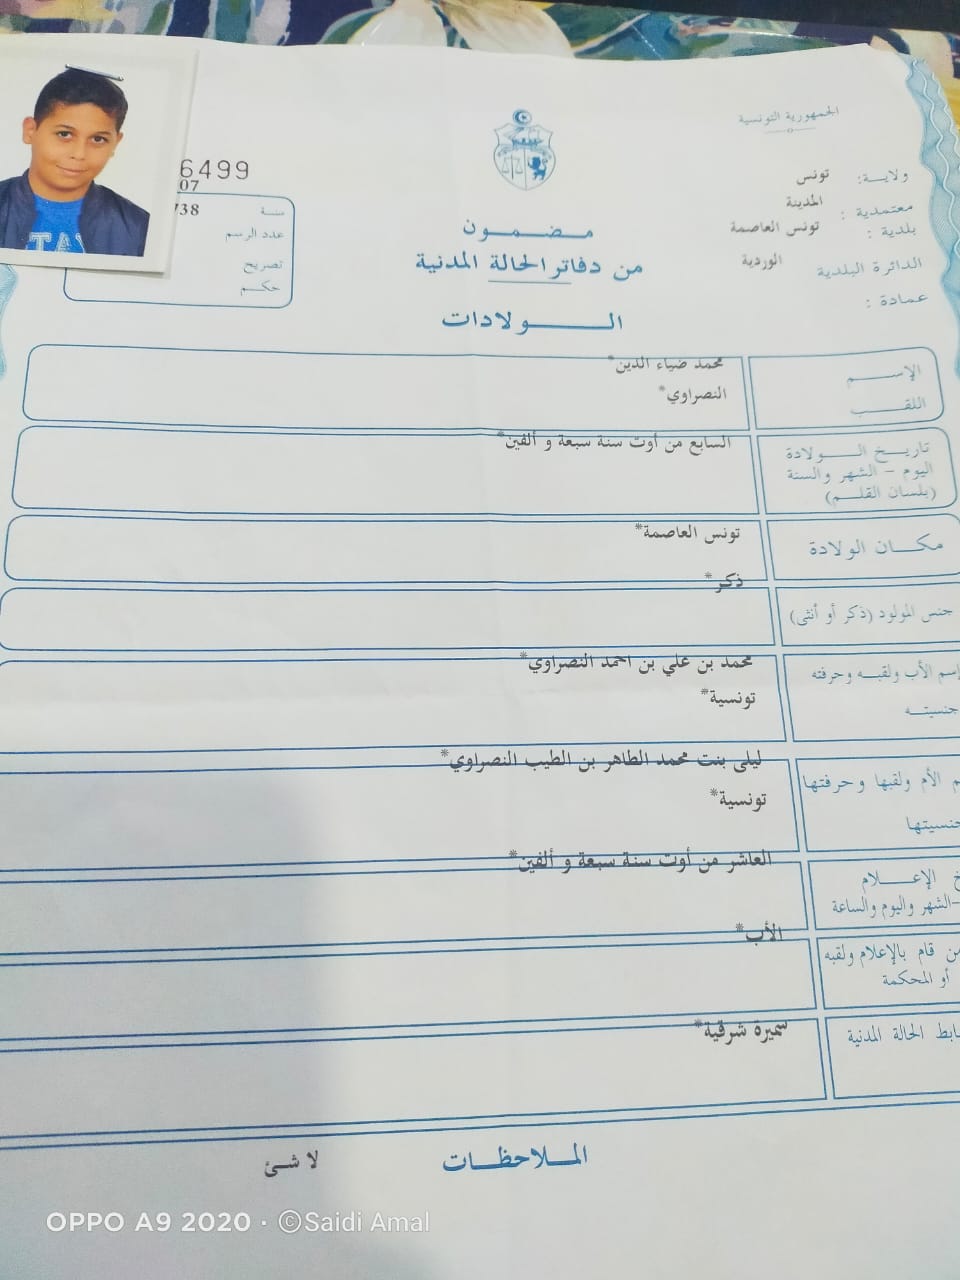 الجمهورية التونسية
ولاية: تونس
معتمدية : المدينة
بلدية : تونس العاصمة
الدائرة البلدية الوردية
عمادة :
6499
07
سنة
738
عدد الرسم
تصريح
حكم
مضمون
من دفاتر الحالة المدنية
الولادات
الإسم محمد ضياء الدين*
اللقب النصراوي*
تاريخ الولادة السابع من أوت سنة سبعة و ألفين*
اليوم - الشهر والسنة
(بلسان القلم)
مكان الولادة تونس العاصمة*
ذكر*
جنس المولود (ذكر أو أنثى)
إسم الأب ولقبه وحرفته محمد بن علي بن احمد النصراوي*
جنسيته تونسية*
ليلى بنت محمد الطاهر بن الطيب النصراوي*
الأم ولقبها وحرفتها
جنسيتها تونسية*
العاشر من أوت سنة سبعة و ألفين*
الإعلام
الشهر واليوم والساعة
الأب*
قام بالإعلام ولقبه
أو المحكمة
الحالة المدنية سميرة شرقية*
الملاحظات لا شئ
OPPO A9 2020 · ©Saidi Amal